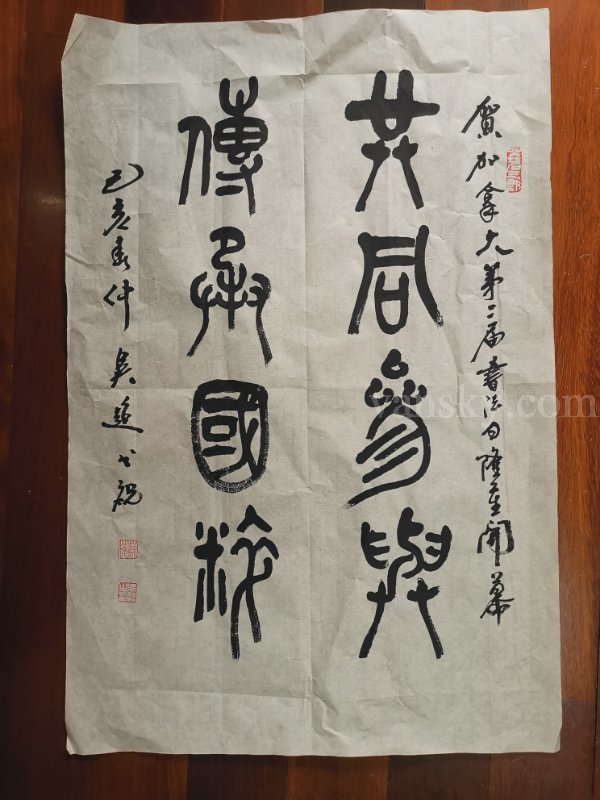 贺加拿大第二届書法日隆重開幕
共同參與
傳承國粹
己亥春仲吳延书祝
vansky.com